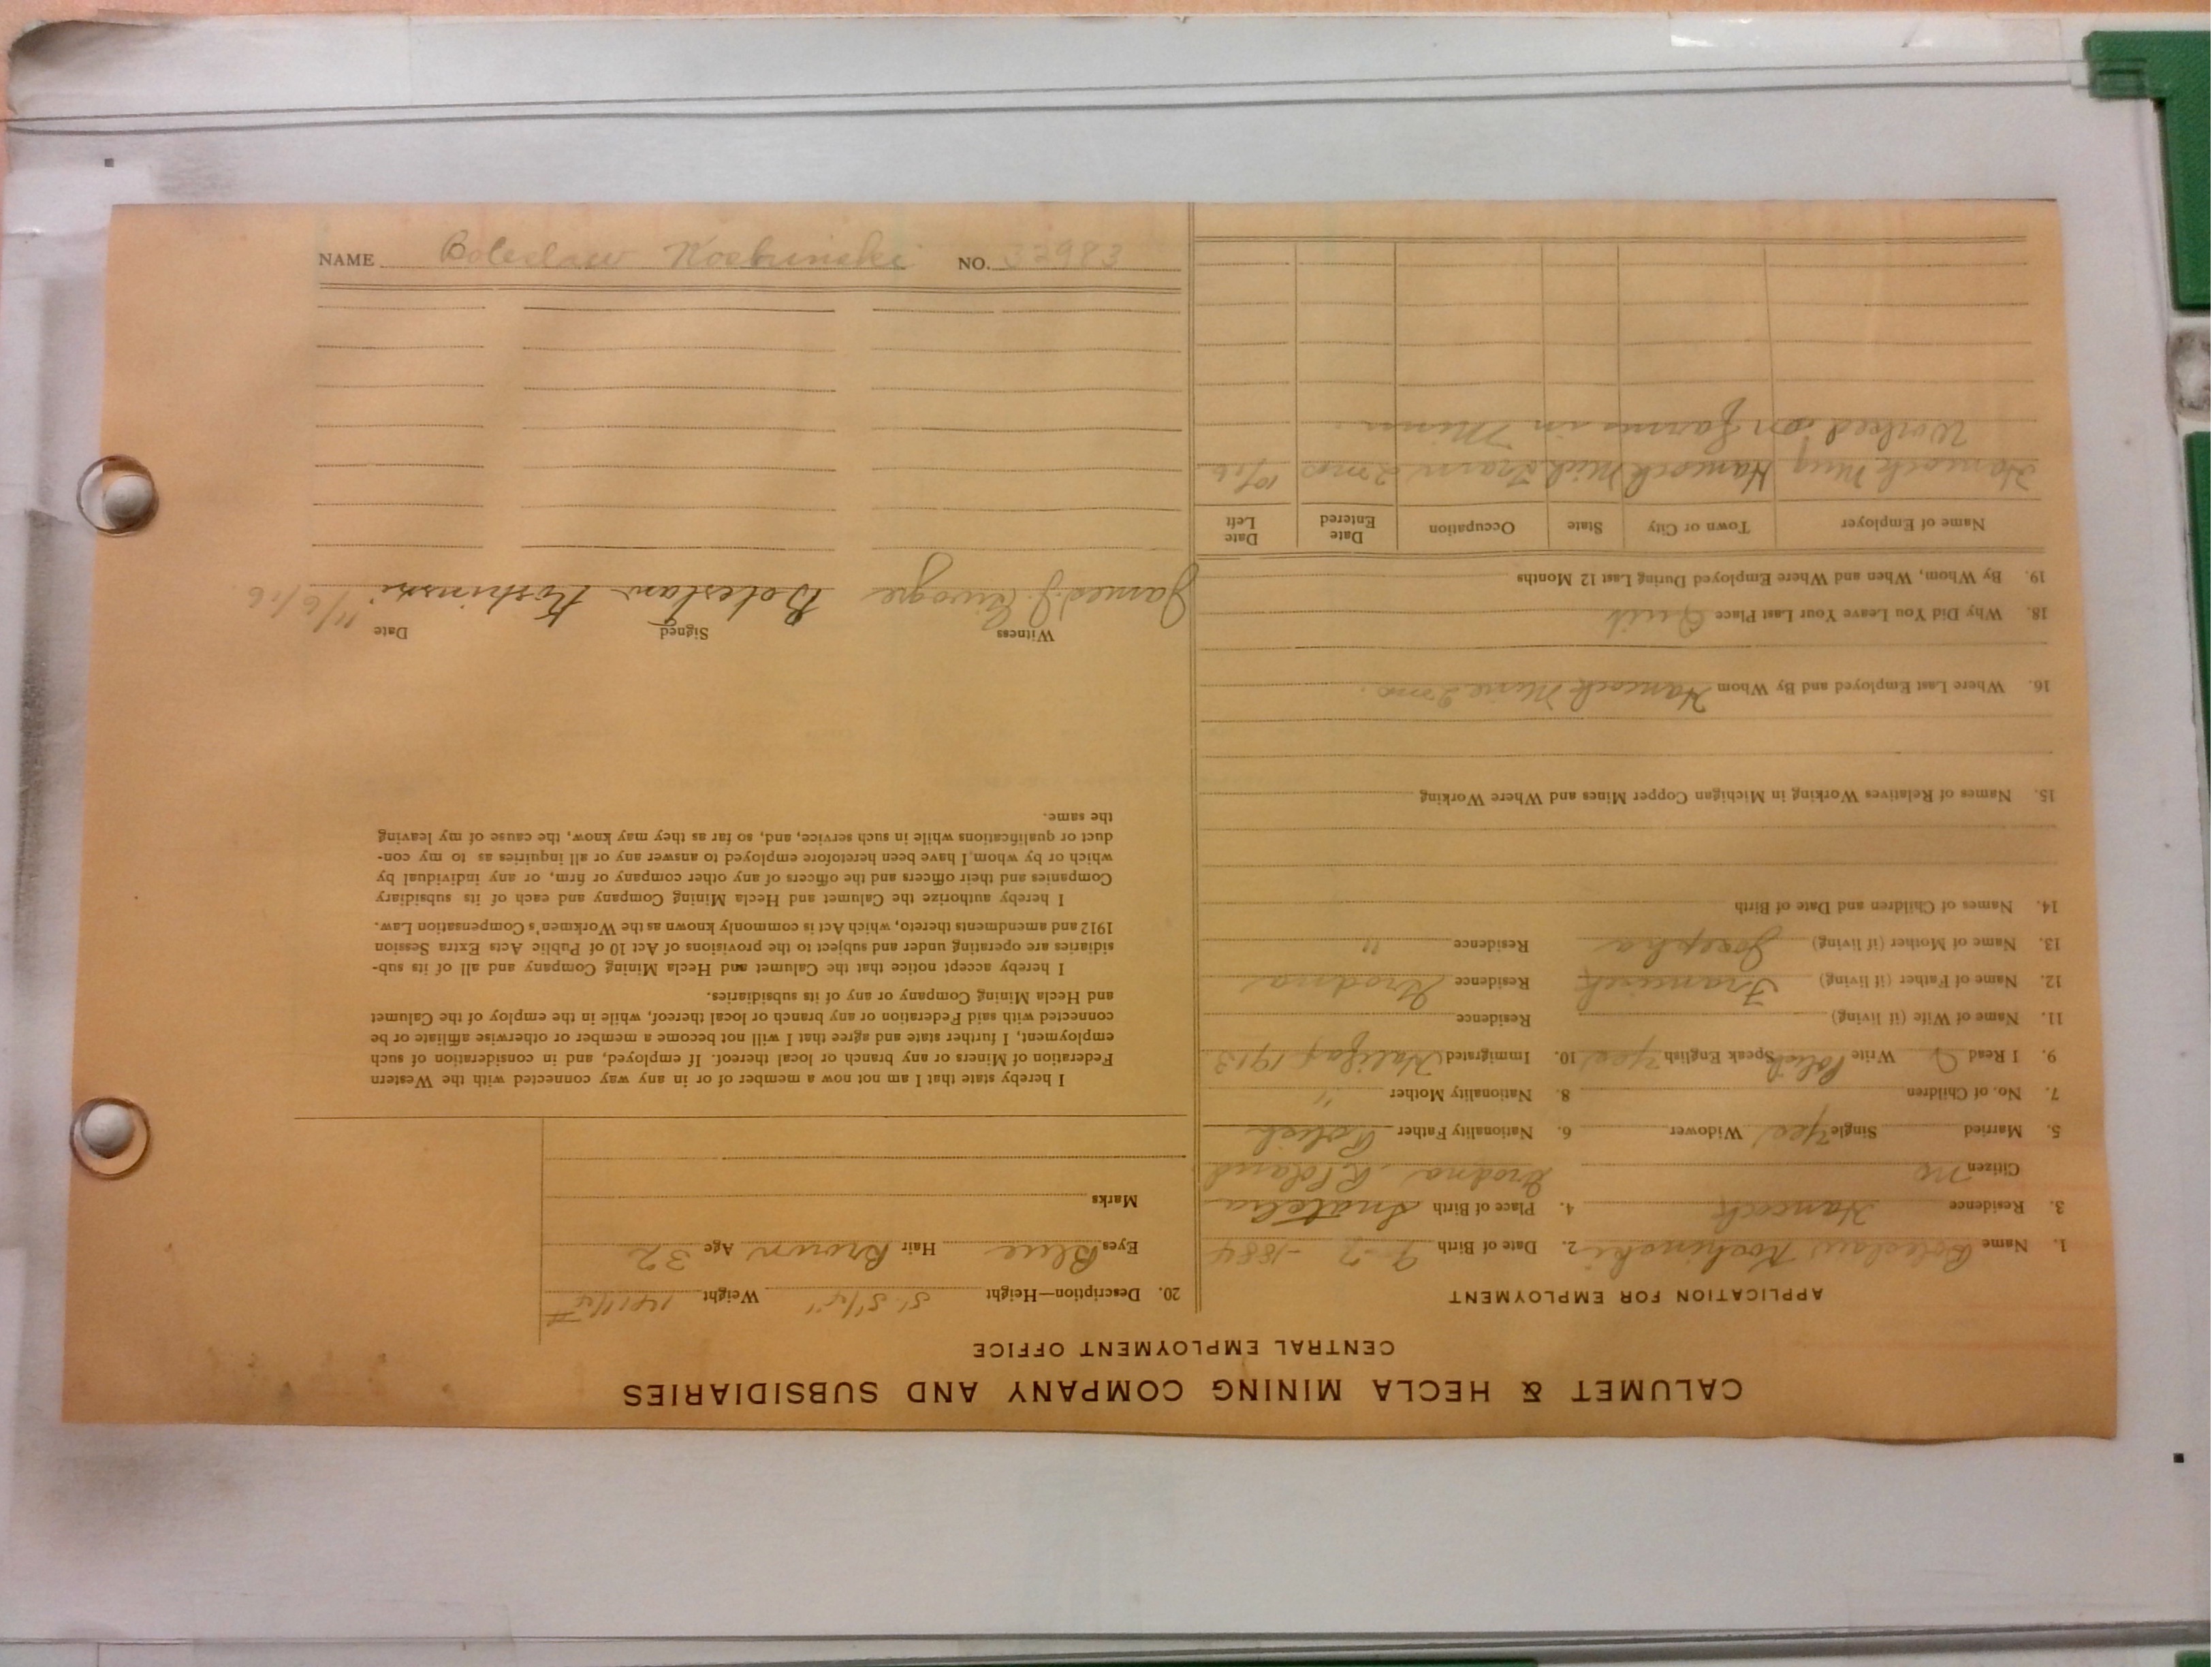 CALUMET & HECLA MINING COMPANY AND SUBSIDIARIES
CENTRAL EMPLOYMENT OFFICE
APPLICATION FOR EMPLOYMENT
1. Name Boleslaw 2. Date of Birth 9-7-1884
3. Residence Hancock 4. Place of Birth
Citizen no Grodna. R. Poland
5. Married Single Yes Widower 6. Nationality Father Polish
7. No. of Children 8. Nationality Mother "
9. I Read Write Polish Speak English Yes 10. Immigrated Halifax 1913
11. Name of Wife (if living) Residence
12. Name of Father (if living) Residence Grodna
13. Name of Mother (if living) Josepha Residence "
14. Names of Children and Date of Birth
15. Names of Relatives Working in Michigan Copper Mines and Where Working
16. Where Last Employed and By Whom Hancock Mine 2 mo.
18. Why Did You Leave Your Last Place Quit
19. By Whom, When and Where Employed During Last 12 Months
Name of Employer Town or City State Occupation Date Entered Date Left
Hancock Mng Hancock Mich Tram 2 mos 10/16
Worked on farms in Minn.
20. Description—Height 5' 5 1/4" Weight 141 1/4 #
Eyes Blue Hair Brown Age 32
Marks
I hereby state that I am not now a member of or in any way connected with the Western
Federation of Miners or any branch or local thereof. If employed, and in consideration of such
employment, I further state and agree that I will not become a member or otherwise affiliate or be
connected with said Federation or any branch or local thereof, while in the employ of the Calumet
and Hecla Mining Company or any of its subsidiaries.
I hereby accept notice that the Calumet and Hecla Mining Company and all of its sub-
sidiaries are operating under and subject to the provisions of Act 10 of Public Acts Extra Session
1912 and amendments thereto, which Act is commonly known as the Workmen's Compensation Law.
I hereby authorize the Calumet and Hecla Mining Company and each of its subsidiary
Companies and their officers and the officers of any other company or firm, or any individual by
which or by whom, I have been heretofore employed to answer any or all inquiries as to my con-
duct or qualifications while in such service, and, so far as they may know, the cause of my leaving
the same.
Witness Signed Date
James J. Boleslaw 11/6/16
NAME Boleslaw NO. 32983